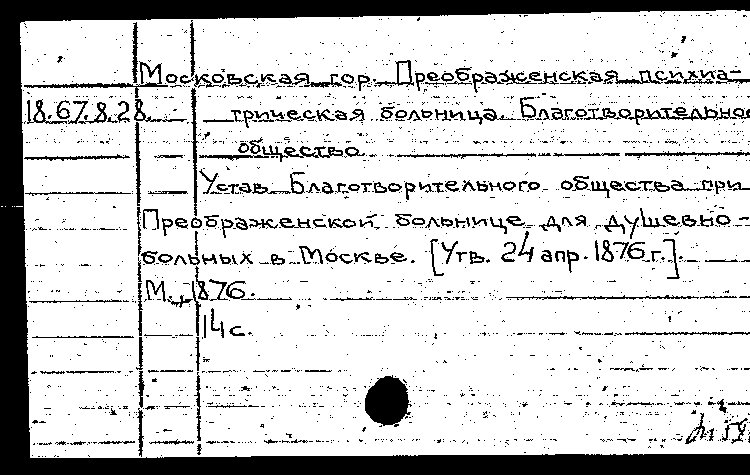 Московская гор. Преображенская психиа-
18.67.8.28. трическая больница. Благотворительное
общество.
Устав Благотворительного общества при
Преображенской больнице для душевно-
больных в Москве. [Утв. 24 апр. 1876 г.].
М., 1876.
14 с.